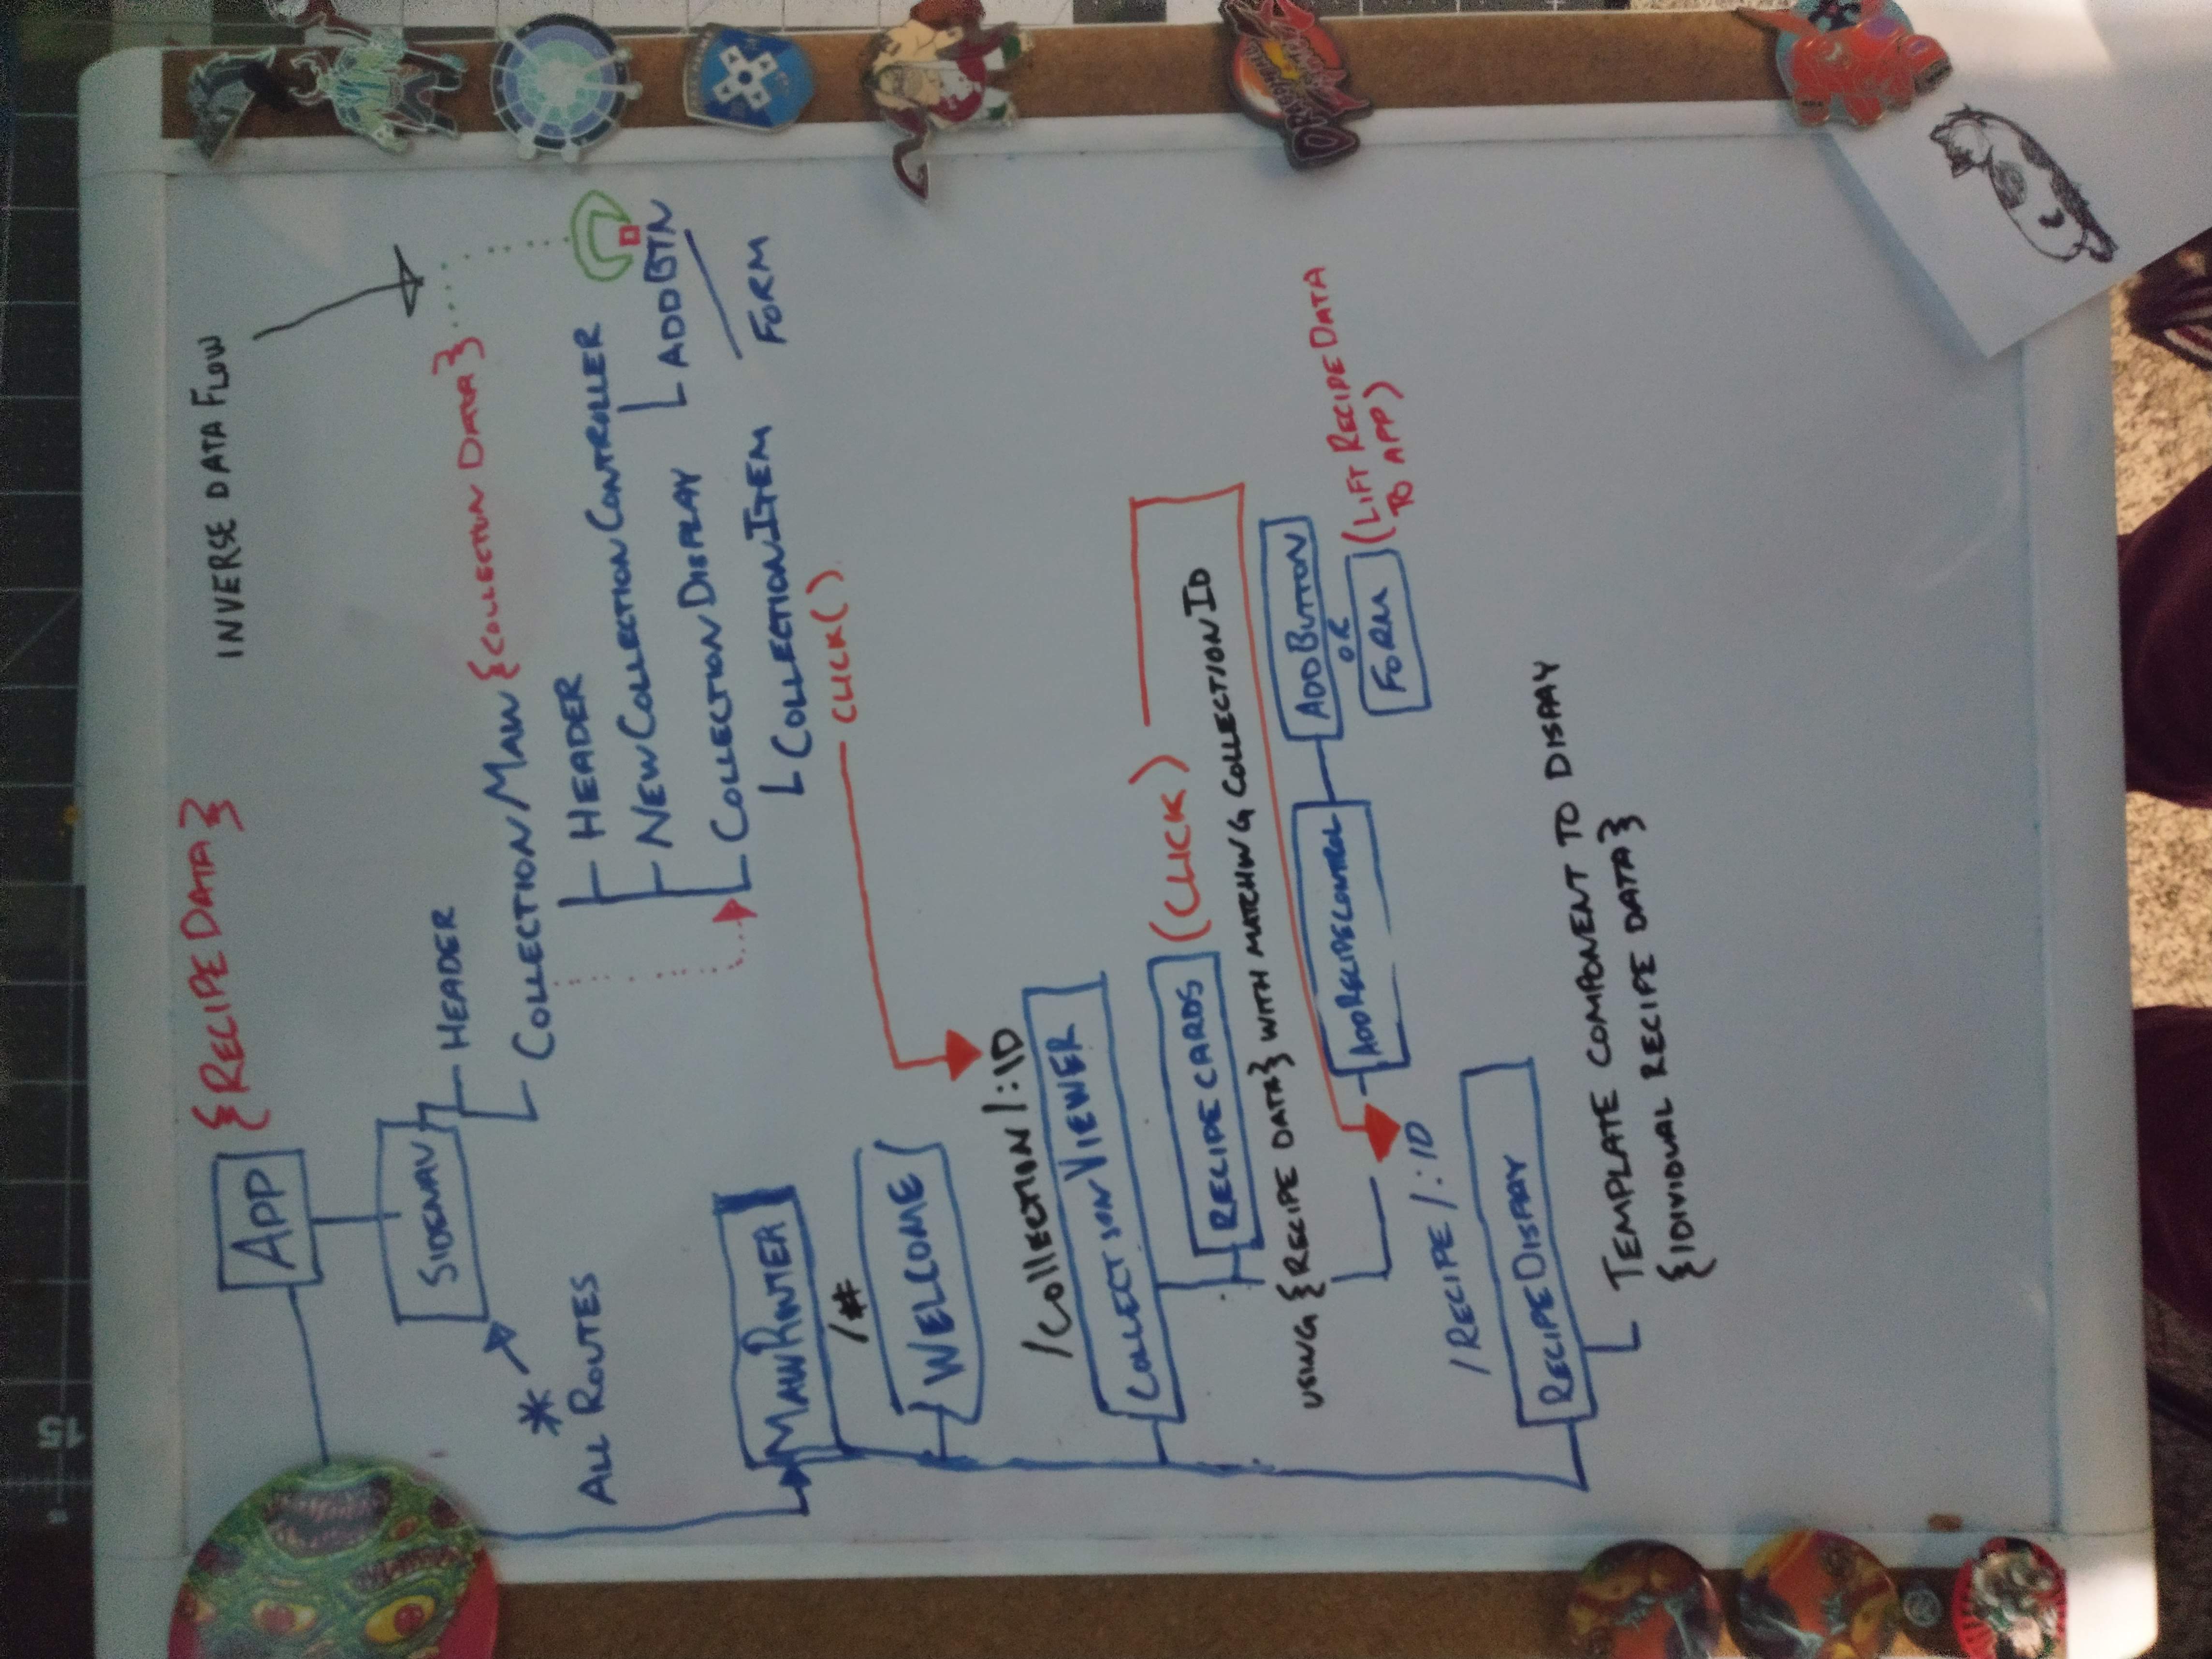 {RECIPE DATA}
INVERSE DATA FLOW
APP
SIDENAV
HEADER
COLLECTION/MAIN {COLLECTION DATA}
HEADER
NEWCOLLECTIONCONTROLLER
ADDBTN
FORM
COLLECTIONDISPLAY
COLLECTIONITEM
CLICK()
*
ALL ROUTES
MAINROUTER
/#
WELCOME
/COLLECTION/:ID
COLLECTIONVIEWER
RECIPECARDS (CLICK)
USING {RECIPE DATA} WITH MATCHING COLLECTIONID
ADDRECIPECONTROL
ADDBUTTON
OR
FORM
(LIFT RECIPEDATA
TO APP)
/RECIPE/:ID
RECIPEDISPLAY
TEMPLATE COMPONENT TO DISPLAY
{IDIVIDUAL RECIPE DATA}
15